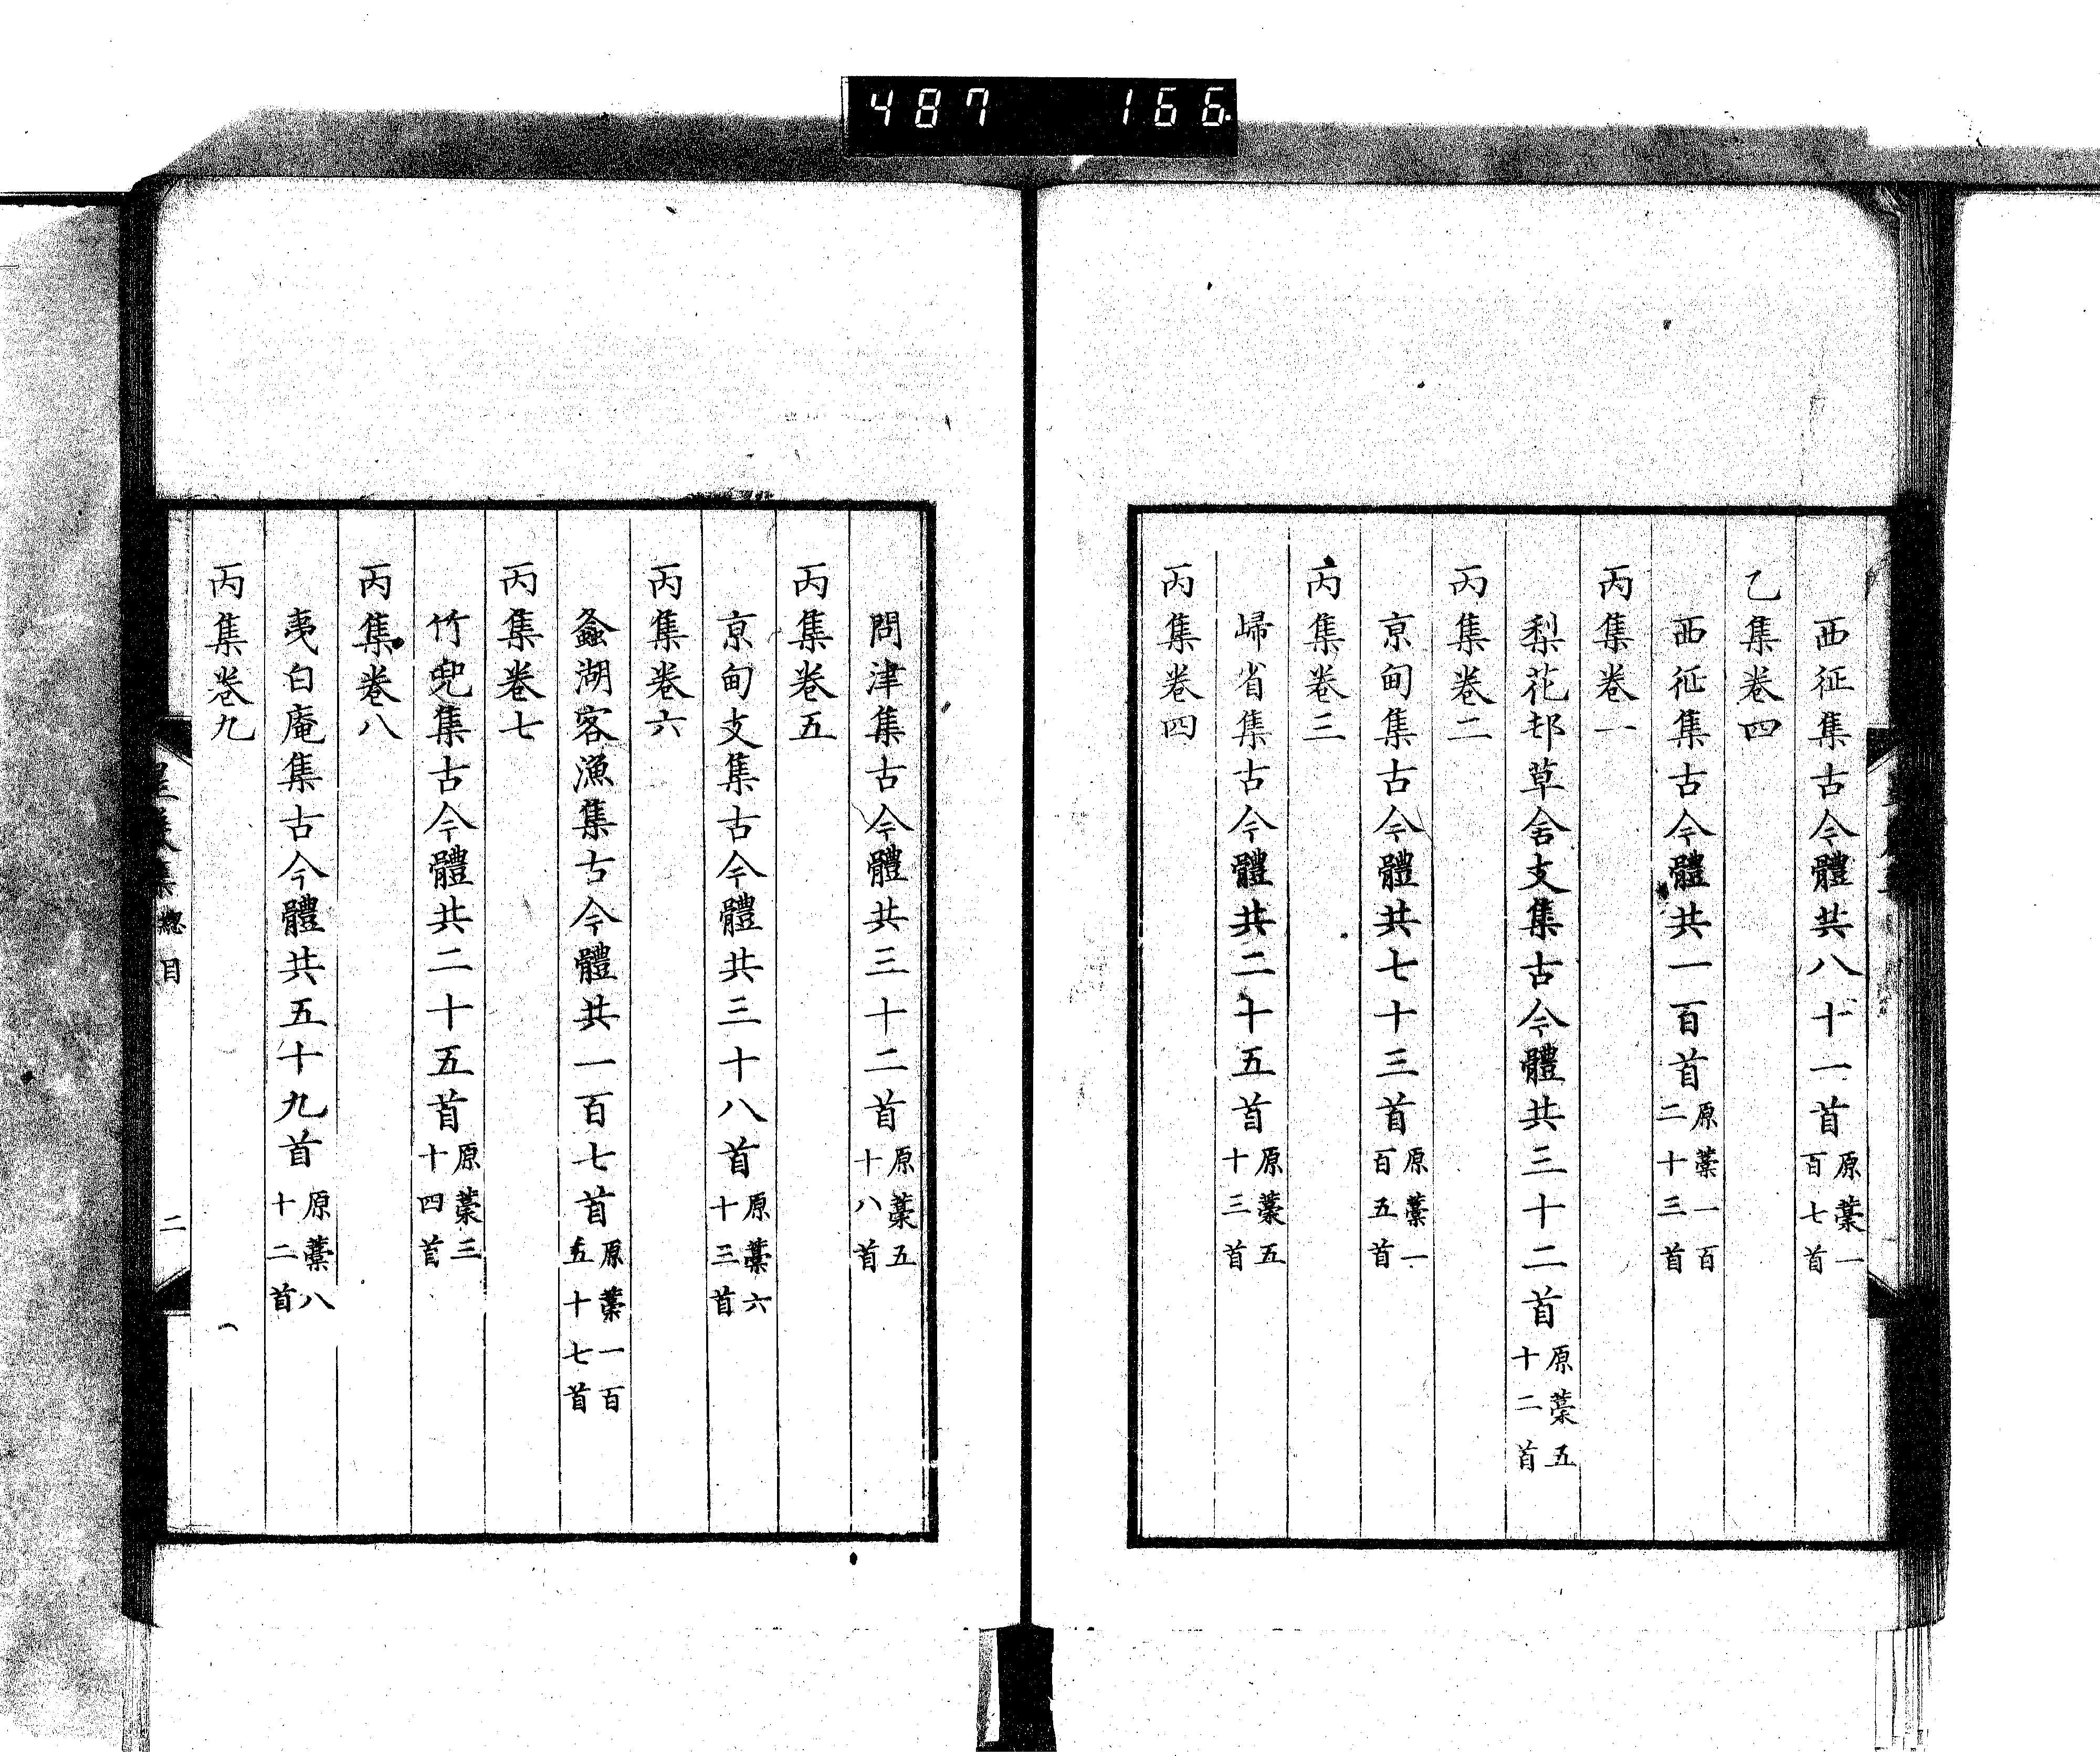 487 166
西征集古今體共八十一首原藁一百七首
乙集卷四
西征集古今體共一百首原藁一百二十三首
丙集卷一
梨花邨草舍支集古今體共三十二首原藁五十二首
丙集卷二
京甸集古今體共七十三首原藁一百五首
丙集卷三
歸省集古今體共二十五首原藁五十三首
丙集卷四
問津集古今體共三十二首原藁五十八首
丙集卷五
京甸支集古今體共三十八首原藁六十三首
丙集卷六
蠡湖客漁集古今體共一百七首原藁一百五十七首
丙集卷七
竹兜集古今體共二十五首原藁三十四首
丙集卷八
夷白庵集古今體共五十九首原藁八十二首
丙集卷九
集 總目 二